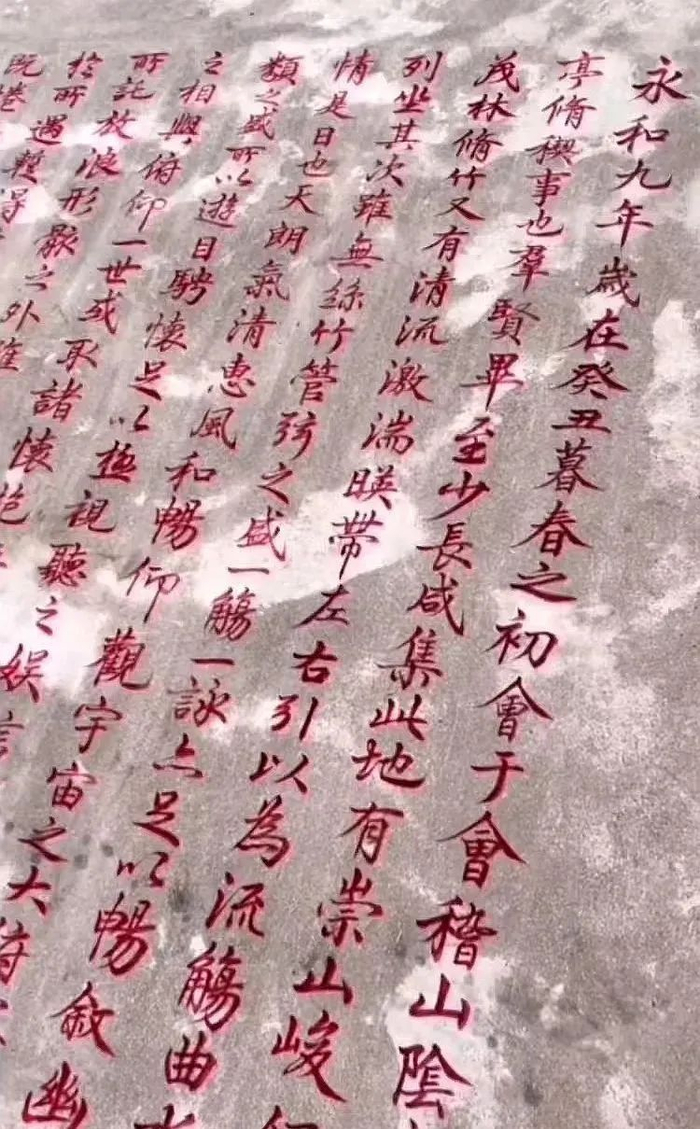 永和九年歲在癸丑暮春之初會于會稽山陰
亭脩稧事也羣賢畢至少長咸集此地有崇山峻
茂林脩竹又有清流激湍暎帶左右引以為流觴曲水
列坐其次雖無絲竹管弦之盛一觴一詠亦足以暢敘幽
情是日也天朗氣清惠風和暢仰觀宇宙之大俯
類之盛所以遊目騁懷足以極視聽之娛
之相與俯仰一世或取諸懷抱
所託放浪形骸之外雖
扵所遇暫得
既倦